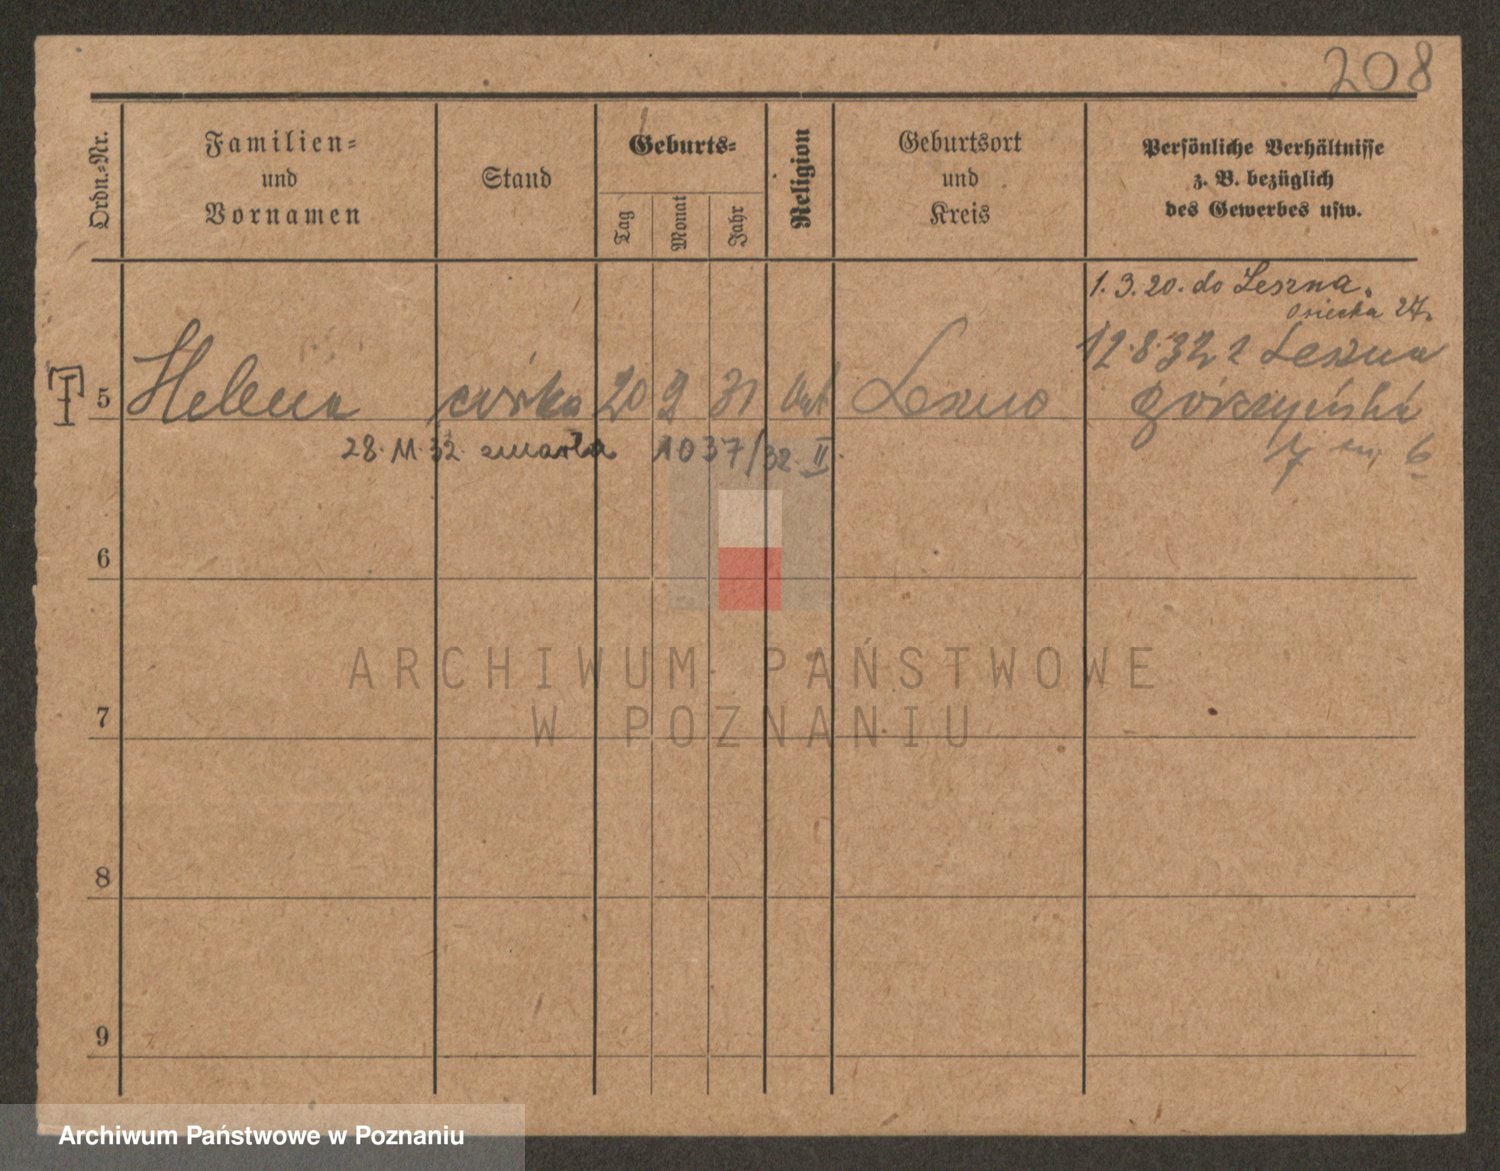 208
Ordn.-Nr.
Familien-
und
Vornamen
Stand
Geburts-
Tag
Monat
Jahr
Religion
Geburtsort
und
Kreis
Persönliche Verhältnisse
z. B. bezüglich
des Gewerbes usw.
1. 3. 20. do Leszna,
Osiecka 27.
12.8.32 z Leszna
5 Helena córka 20 9 31 kat Leszno Górczyńska
28. 11. 32 zmarła 1037/32. II
17 m. 6
6
7
8
9
ARCHIWUM PAŃSTWOWE
W POZNANIU
Archiwum Państwowe w Poznaniu